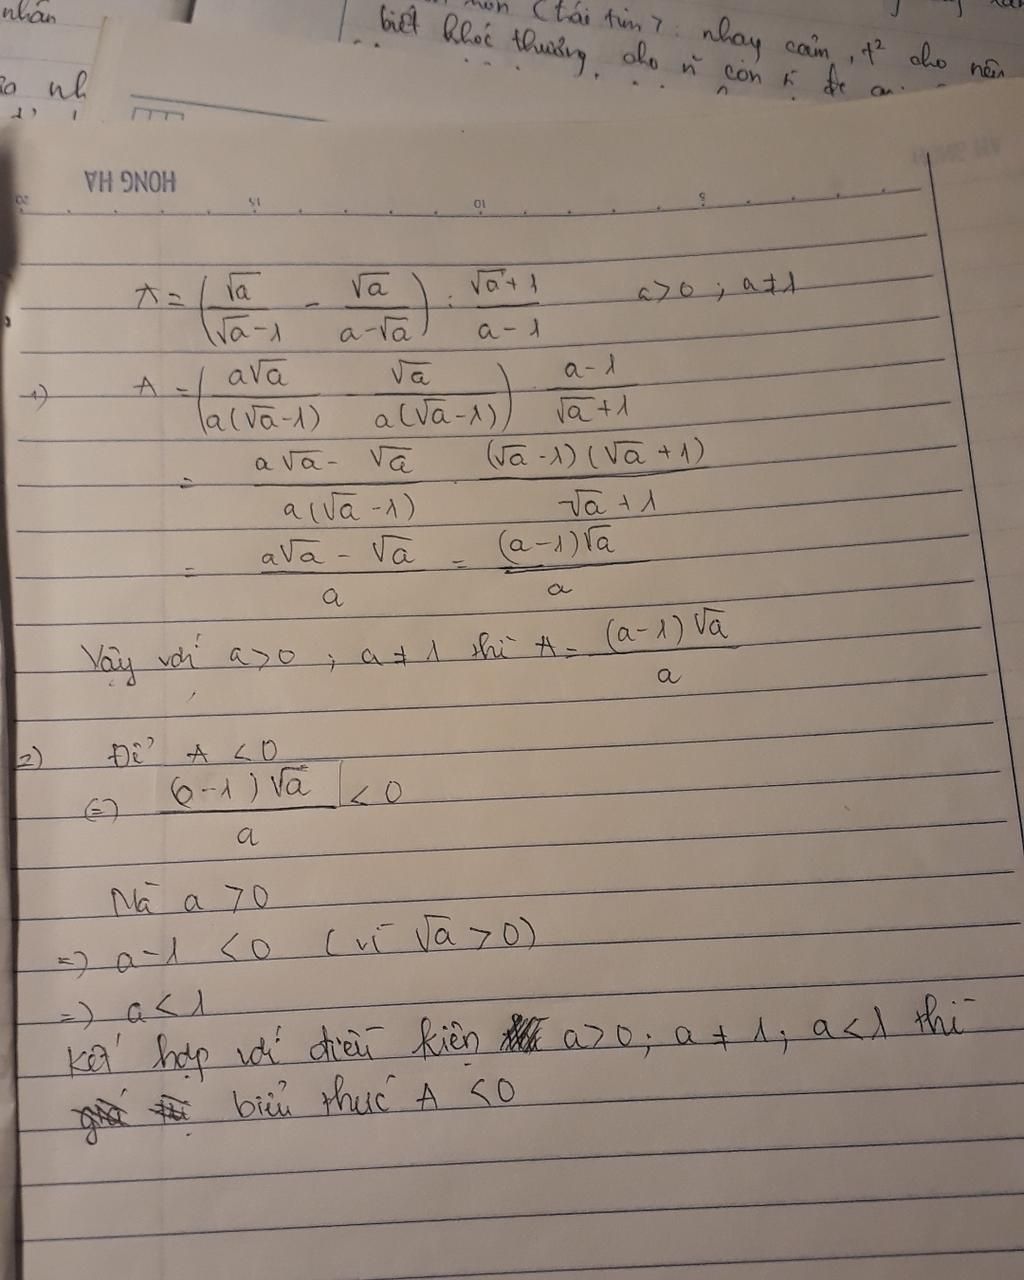 nhân
(tái tim): nhạy cảm, t² cho nên
biết khóc thương, cho n còn
nh
HONG HA
5 10 15 20
A = (√a/(√a-1) - √a/(a-√a)) : (√a+1)/(a-1) a>0 ; a≠1
1) A = (a√a/(a(√a-1)) - √a/(a(√a-1))) · (a-1)/(√a+1)
= (a√a - √a)/(a(√a-1)) · ((√a-1)(√a+1))/(√a+1)
= (a√a - √a)/a = ((a-1)√a)/a
Vậy với a>0 ; a≠1 thì A = ((a-1)√a)/a
2) Để A <0
(=) ((a-1)√a)/a < 0
Mà a >0
=) a-1 <0 (vì √a >0)
=) a<1
Kết hợp với điều kiện a>0; a≠1; a<1 thì
biểu thức A <0